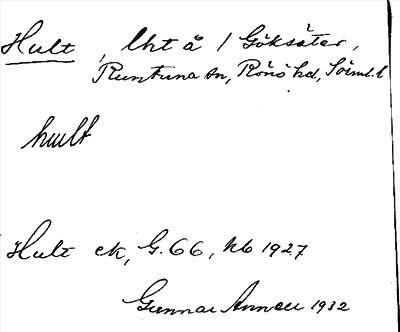 Hult, lht å 1 Göksäter,
Runtuna sn, Rönö hd, Sörml. l
hult
Hult ek, G. 66, kb 1927
Gunnar Annell 1932